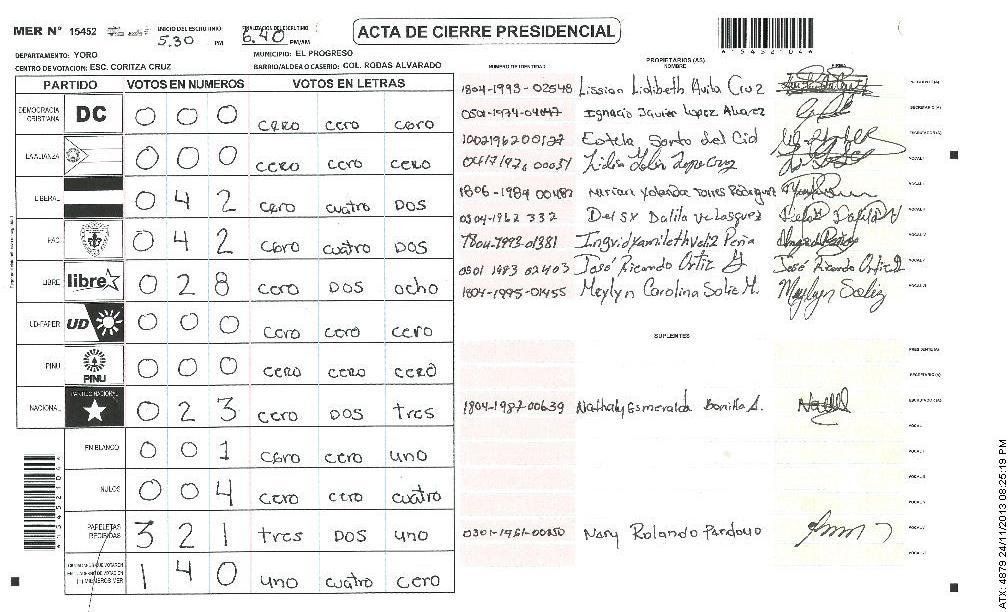 MER N° 15452 INICIO DEL ESCRUTINIO 5.30 PM FINALIZACION DEL ESCRUTINIO 6.40 PM/AM
ACTA DE CIERRE PRESIDENCIAL
A15452104A
DEPARTAMENTO: YORO MUNICIPIO: EL PROGRESO
CENTRO DE VOTACION: ESC. CORITZA CRUZ BARRIO/ALDEA O CASERIO: COL. RODAS ALVARADO
PARTIDO VOTOS EN NUMEROS VOTOS EN LETRAS
DEMOCRACIA CRISTIANA DC 0 0 0 cero cero cero
LA ALIANZA 0 0 0 cero cero cero
LIBERAL 0 4 2 cero cuatro DOS
PAC 0 4 2 cero cuatro DOS
LIBRE libre 0 2 8 cero DOS ocho
UD-FAPER UD 0 0 0 cero cero cero
PINU PINU 0 0 0 cero cero cero
NACIONAL PARTIDO NACIONAL 0 2 3 cero DOS tres
EN BLANCO 0 0 1 cero cero uno
NULOS 0 0 4 cero cero cuatro
PAPELETAS RECIBIDAS 3 2 1 tres DOS uno
1 4 0 uno cuatro cero
PROPIETARIOS (AS)
NUMERO DE IDENTIDAD NOMBRE FIRMA
1804-1993-02548 Lissian Lidibeth Avila Cruz PRESIDENTE(A)
0501-1974-04047 Ignacio Javier Lopez Alvarez SECRETARIO (A)
1002196200127 Estela Santo del Cid ESCRUTADOR (A)
VOCAL I
Miriam Yolanda Torres Rodriguez VOCAL II
0504-1962 332 Delsy Dalila Velasquez
1804-1993-01381 Ingrid Yamileth Veliz Peña
0501 1983 02403 José Ricardo Ortiz José Ricardo Ortiz
1804-1995-01455 Meylyn Carolina Solis M.
SUPLENTES
PRESIDENTE (A)
SECRETARIO (A)
1804-1987-00639 Nathaly Esmeralda Bonilla A. ESCRUTADOR (A)
VOCAL I
0301-1961-00850 Nery Rolando Pardovo
ATX: 4879 24/11/2013 08:25:19 PM